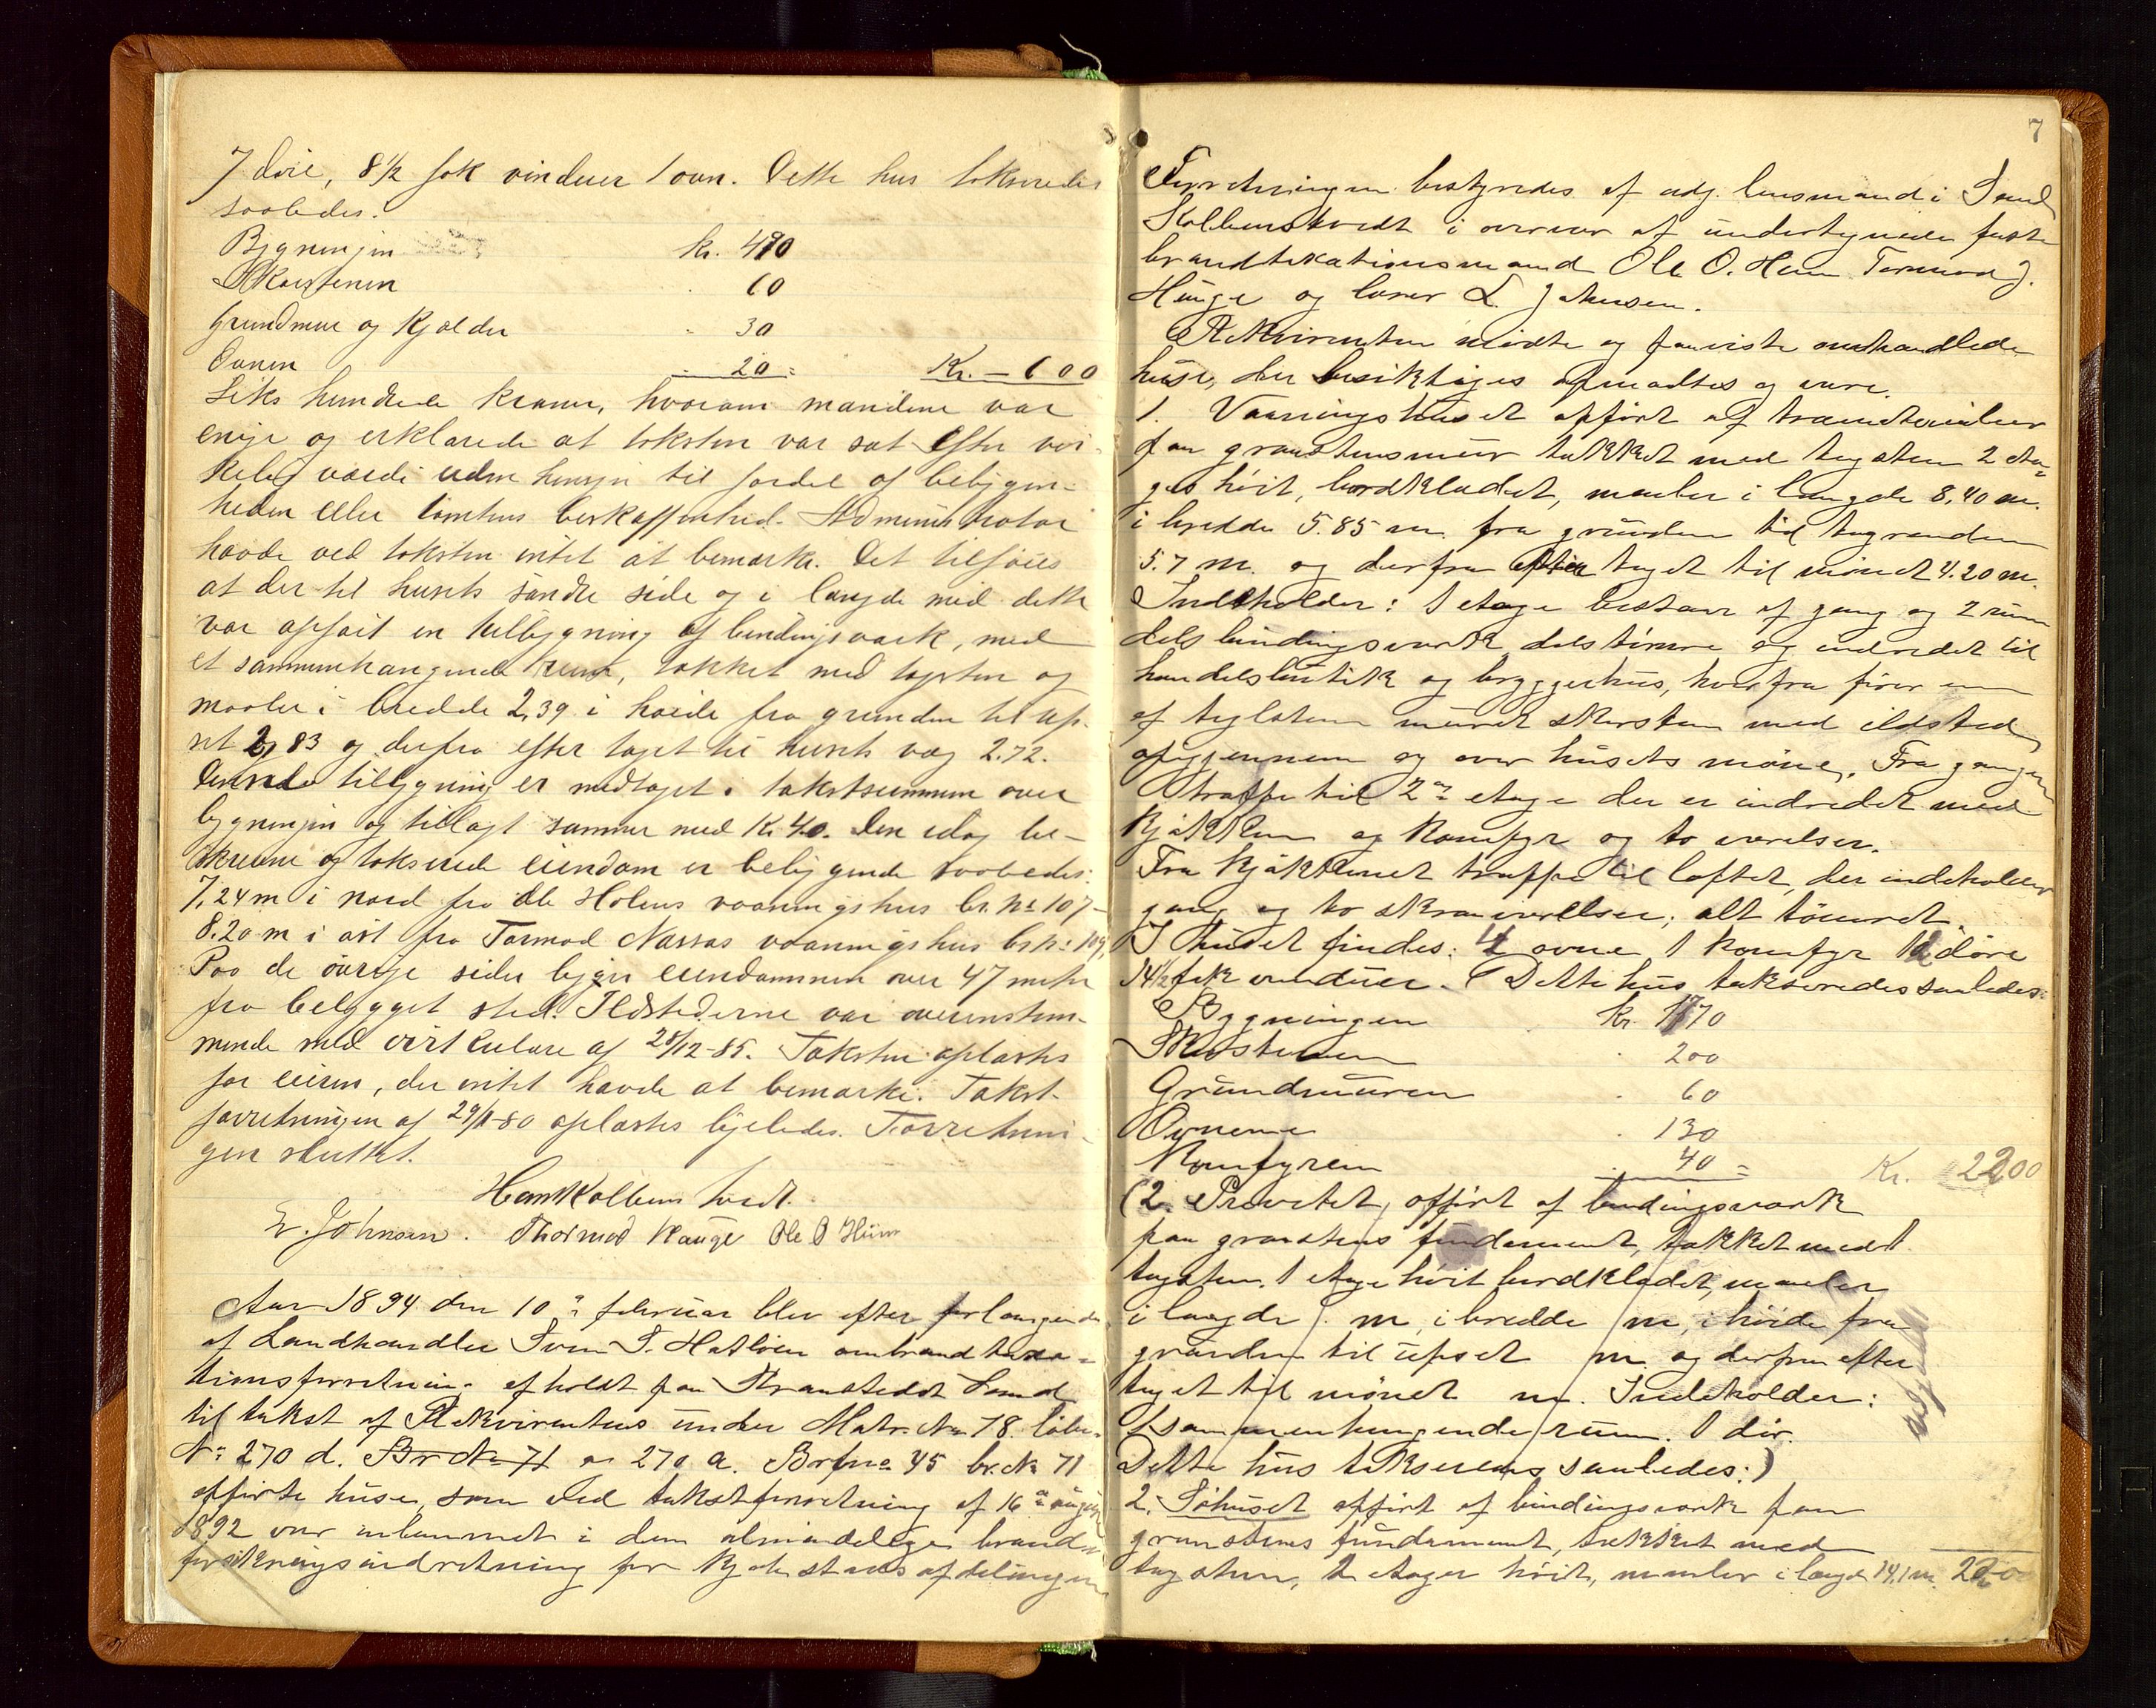 7 döre, 8½ fok vinduer 1 ovn. Dette hus takseredes
saaledes.
Bygningen kr. 490
Skorstenen 60
Grundmur og Kjælder 30
Ovnen 20 = Kr. 600
Seks hundrede kroner, hvorom mændene var
enige og erklærede at taksten var sat efter vir-
kelig værdi uden hensyn til fordel af bebyggen-
heden eller tomtens beskaffenhed. Administrator
havde ved taksten intet at bemærke. Det tilföies
at der til husets söndre side og i længde med dette
var opfört en tilbygning af bindingsværk, med
et sammenhængende rum, tækket med tagsten og
maaler i bredde 2,39 i höide fra grunden til up-
set 2,83 og derfra efter taget til husets væg 2.72.
Denne tilbygning er medtaget i takstsummen over
bygningen og tillagt samme med Kr. 40. Den idag be-
skrevne og takserede eiendom er beliggende saaledes:
7,24 m i nord fra Ole Holens vaaningshus br.no 107-
8.20 m i öst fra Tormod Næssas vaaningshus br.no 109,
Paa de övrige sider ligger eiendommen over 47 meter
fra bebygget sted. Ildstederne var overenstem-
mende med cirkulære af 28/12-85. Taksten oplæstes
for eieren, der intet havde at bemærke. Takst-
forretningen af 29/11-80 oplæstes ligeledes. Forretnin-
gen sluttet.
Hans Kolbenstvedt.
E. Johnsen. Thormod Hauge Ole O Hiim
Aar 1894 den 10de februar blev efter forlangende
af Landhandler Sven S. Hatløen ombrandtaxa-
tionsforretning afholdt paa Strandstedet Sand
til takst af Rekvirentens under Matr. No 78. löbe-
No 270 d. Br No 71 og 270 a. Brno 45 br. No 71
opförte huse, som ved takstforretning af 16de august
1892 var indlemmet i den almindelige brand-
forsikringsindretning for Kjöbstædsafdelingen
7
Forretningen bestyredes af adj. lensmand i Sand
Kolbenstvedt i overvær af undertegnede faste
brandtaxationsmænd Ole O. Hiim Tormod J.
Hauge og lærer E. Johnsen.
Rekvirenten mödte og paaviste omhandlede
huse, der besiktiges opmaaltes og være.
1. Vaaningshuset opfört af træmaterialier
paa graastensmur tækket med tagsten 2 eta-
ger höit, bordklædet, maaler i længde 8,40 m.
i bredde 5.85 m. fra grunden til tagrenden
5.7 m. og derfra efter taget til mönet 4.20 m.
Indeholder: 1 etage bestaar af gang og 2 rum
dels bindingsværk, dels tömre og indredet til
handelsbutik og bryggerhus, hvorfra förer en
af teglsten muret skorsten med ildsted
opigjennem og over husets möne. Fra gangen
trappe til 2den etage der er indredet med
kjökken og komfyr og to værelser.
Fra kjökkenet trappe til loftet, der indeholder
gang og to skraaværelser, alt tömret.
I huset findes: 4 ovne 1 komfyr 12 döre
14½ fok vinduer. Dette hus takseredes saaledes:
Bygningen kr. 1770
Skorstenen 200
Grundmuren 60
Ovnene 130
Komfyren 40 = Kr. 2200
(2. Privetet, opfört af bindingsværk
paa graastens fundament, tækket med
tagsten. 1 etage höit bordklædet, maaler
i længde m, i bredde m, i höide fra
grunden til upset m. og derfra efter
taget til mönet m. Indeholder:
1 sammenhængende rum. 1 dör.
Dette hus takseredes saaledes:)
2. Söhuset opfört af bindingsværk paa
graastens fundament, tækket med
tagsten, 2 etager höit, maaler i længde 14,1 m. 2200